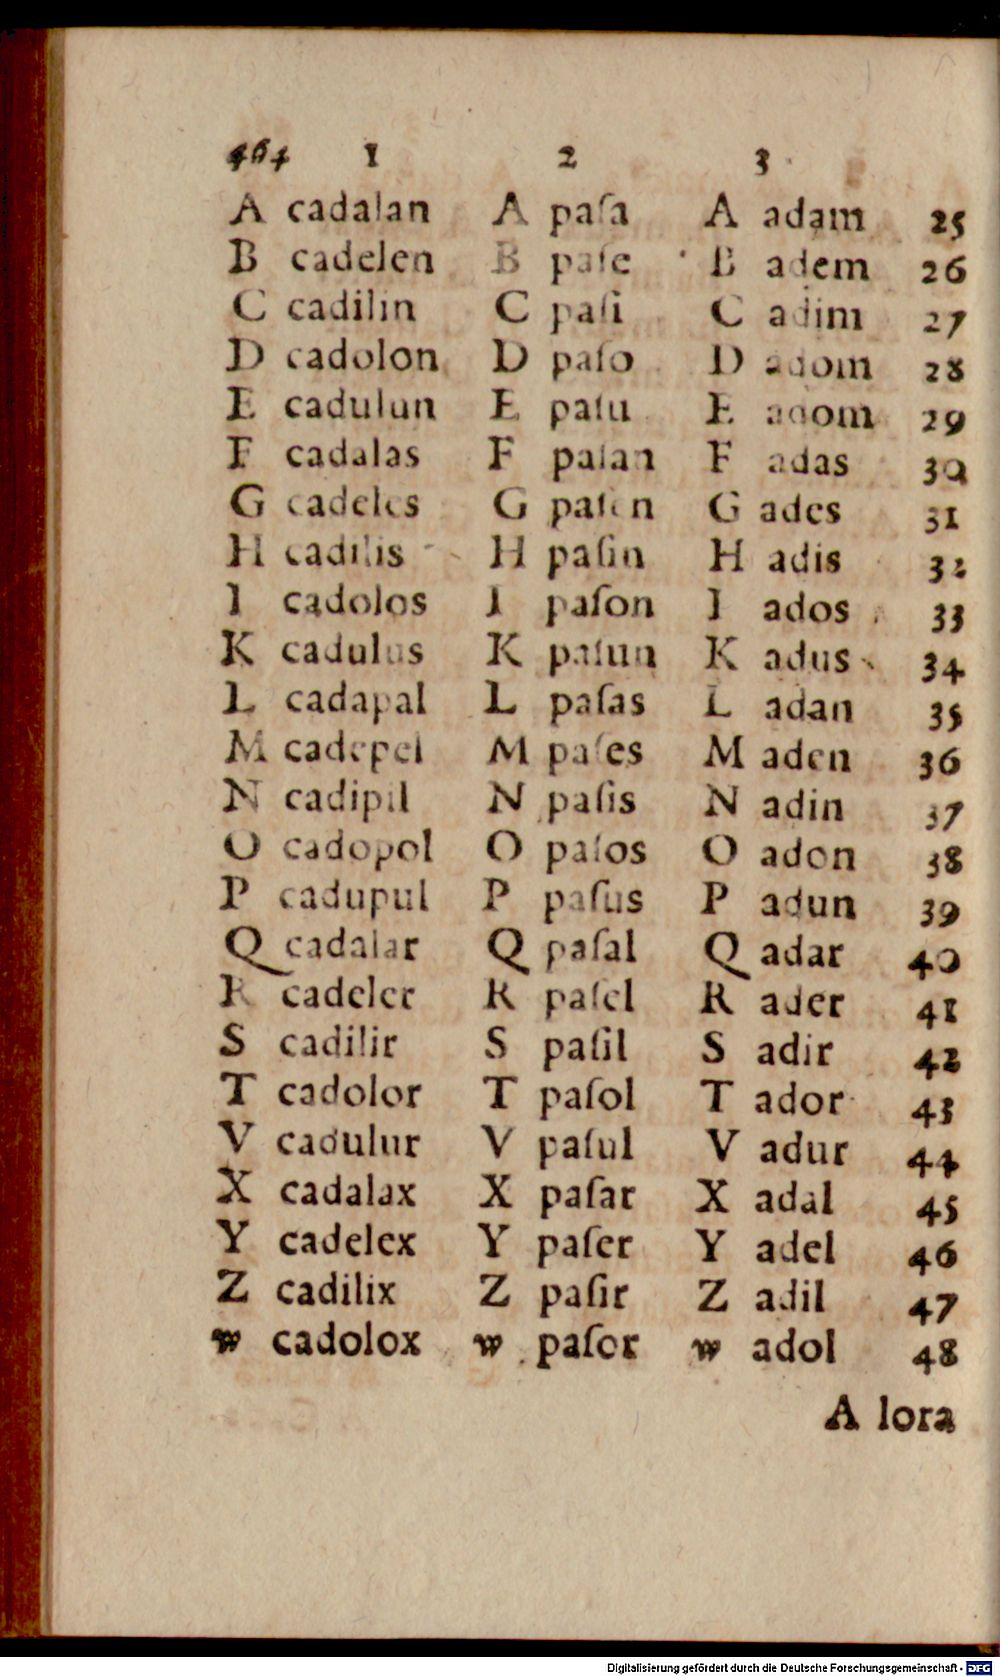 464 1 2 3
A cadalan A paſa A adam 25
B cadelen B paſe B adem 26
C cadilin C paſi C adim 27
D cadolon D paſo D adom 28
E cadulun E paſu E adom 29
F cadalas F paſan F adas 30
G cadeles G paſen G ades 31
H cadilis H paſin H adis 32
I cadolos I paſon I ados 33
K cadulus K paſun K adus 34
L cadapal L paſas L adan 35
M cadepel M paſes M aden 36
N cadipil N paſis N adin 37
O cadopol O paſos O adon 38
P cadupul P paſus P adun 39
Q cadalar Q paſal Q adar 40
R cadeler R paſel R ader 41
S cadilir S paſil S adir 42
T cadolor T paſol T ador 43
V cadulur V paſul V adur 44
X cadalax X paſar X adal 45
Y cadelex Y paſer Y adel 46
Z cadilix Z paſir Z adil 47
w cadolox w paſor w adol 48
A lora
Digitalisierung gefördert durch die Deutsche Forschungsgemeinschaft - DFG